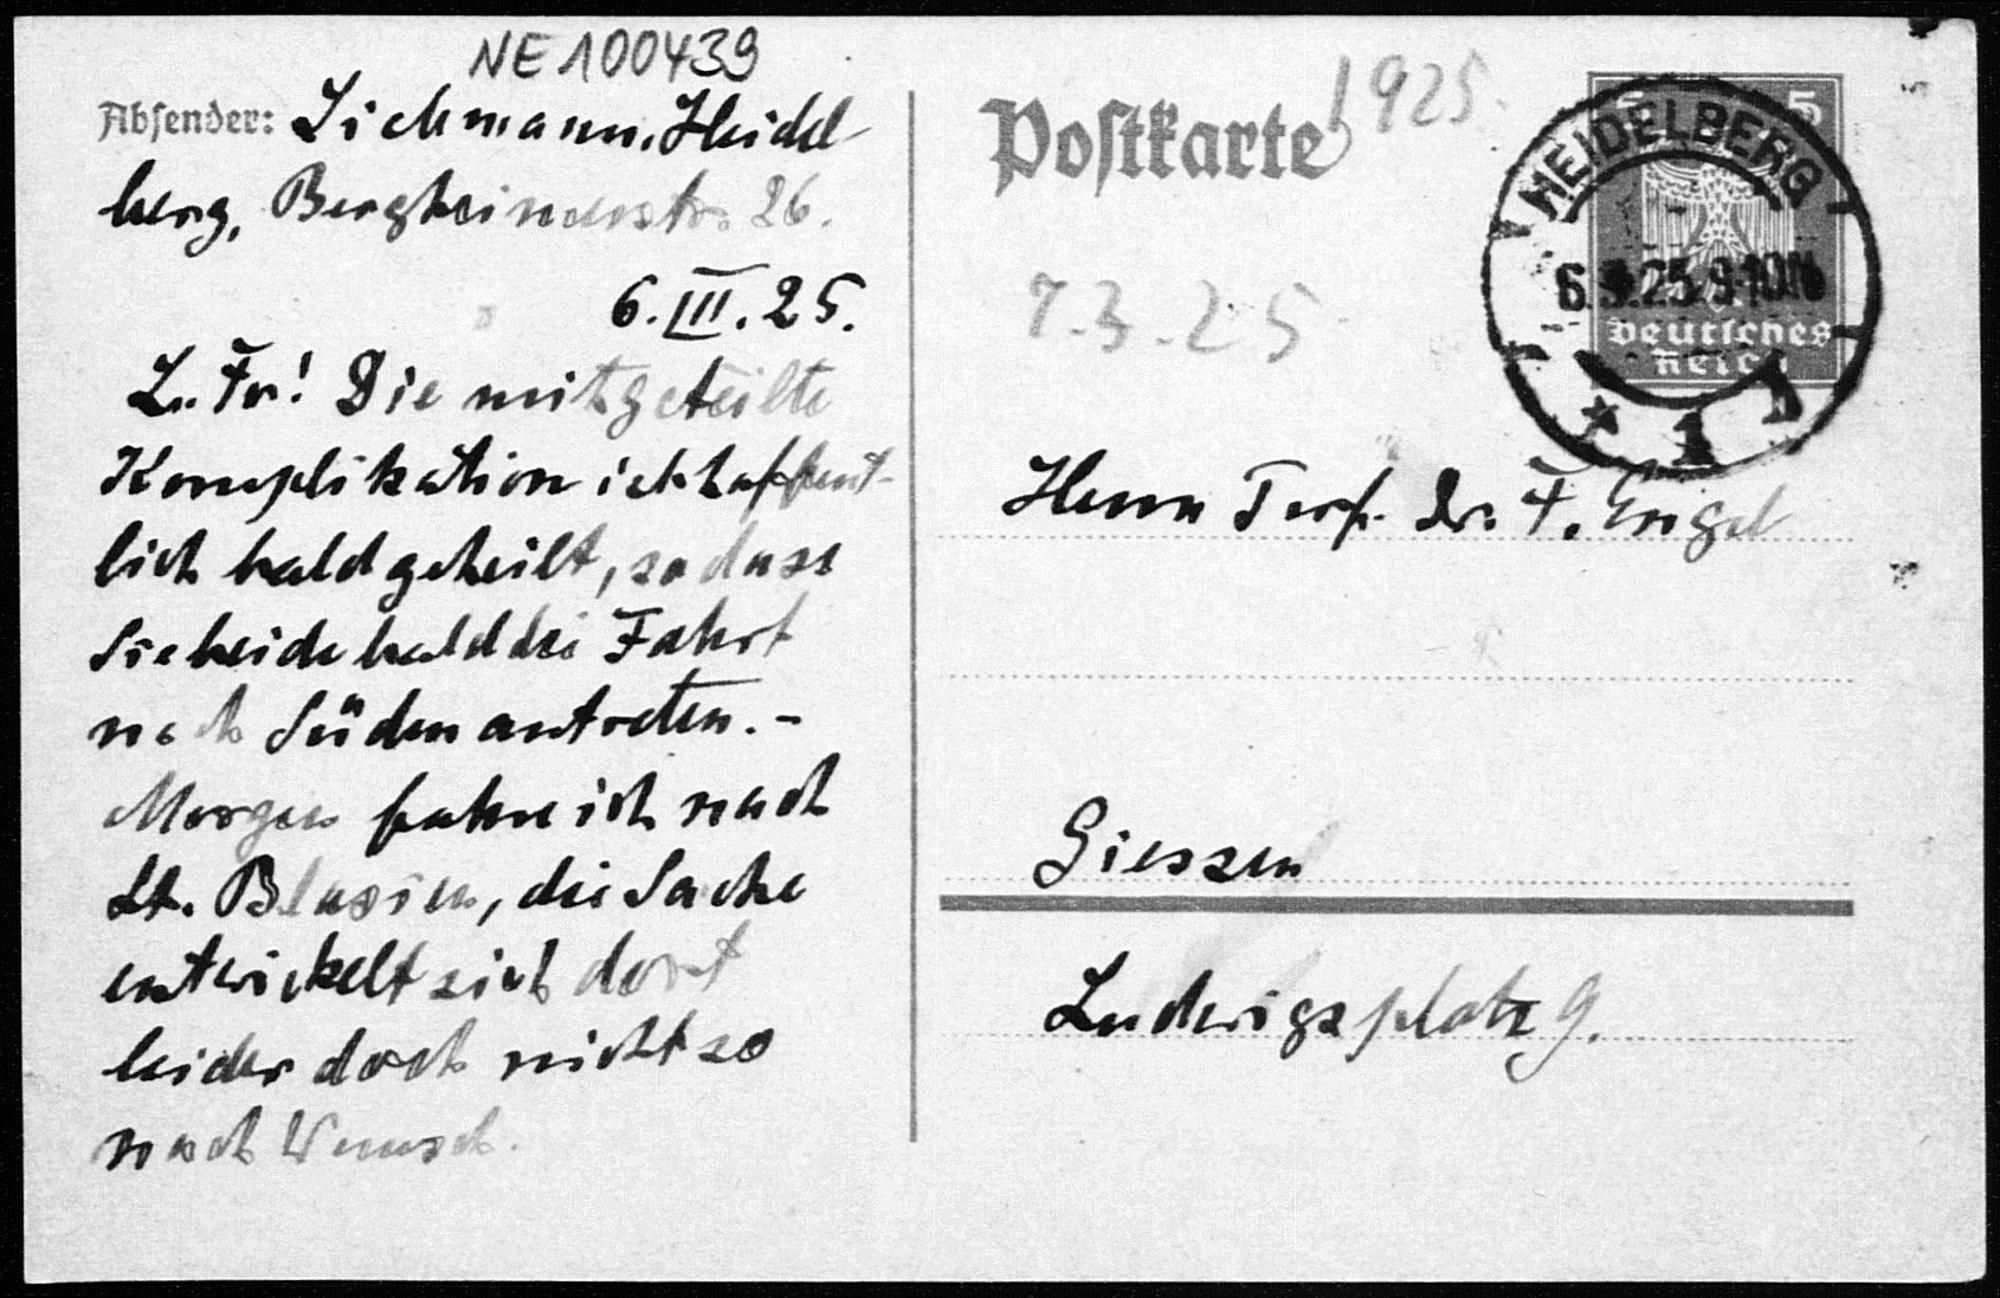 NE 100439
Absender: Liebmann, Heidel-
berg, Bergheimerstr. 26.
6. III. 25.
L. Fr.! Die mitgeteilte
Komplikation ist hoffent-
lich bald geheilt, so dass
Sie beide bald die Fahrt
nach Süden antreten. -
Morgen fahre ich nach
St. Blasien, die Sache
entwickelt sich dort
leider doch nicht so
nach Wunsch.
Postkarte
1925.
7.3.25
HEIDELBERG
5
6.3.25.9-10N
Deutsches
Reich
* 1
Herrn Prof. Dr. F. Engel
Giessen
Ludwigsplatz 9.